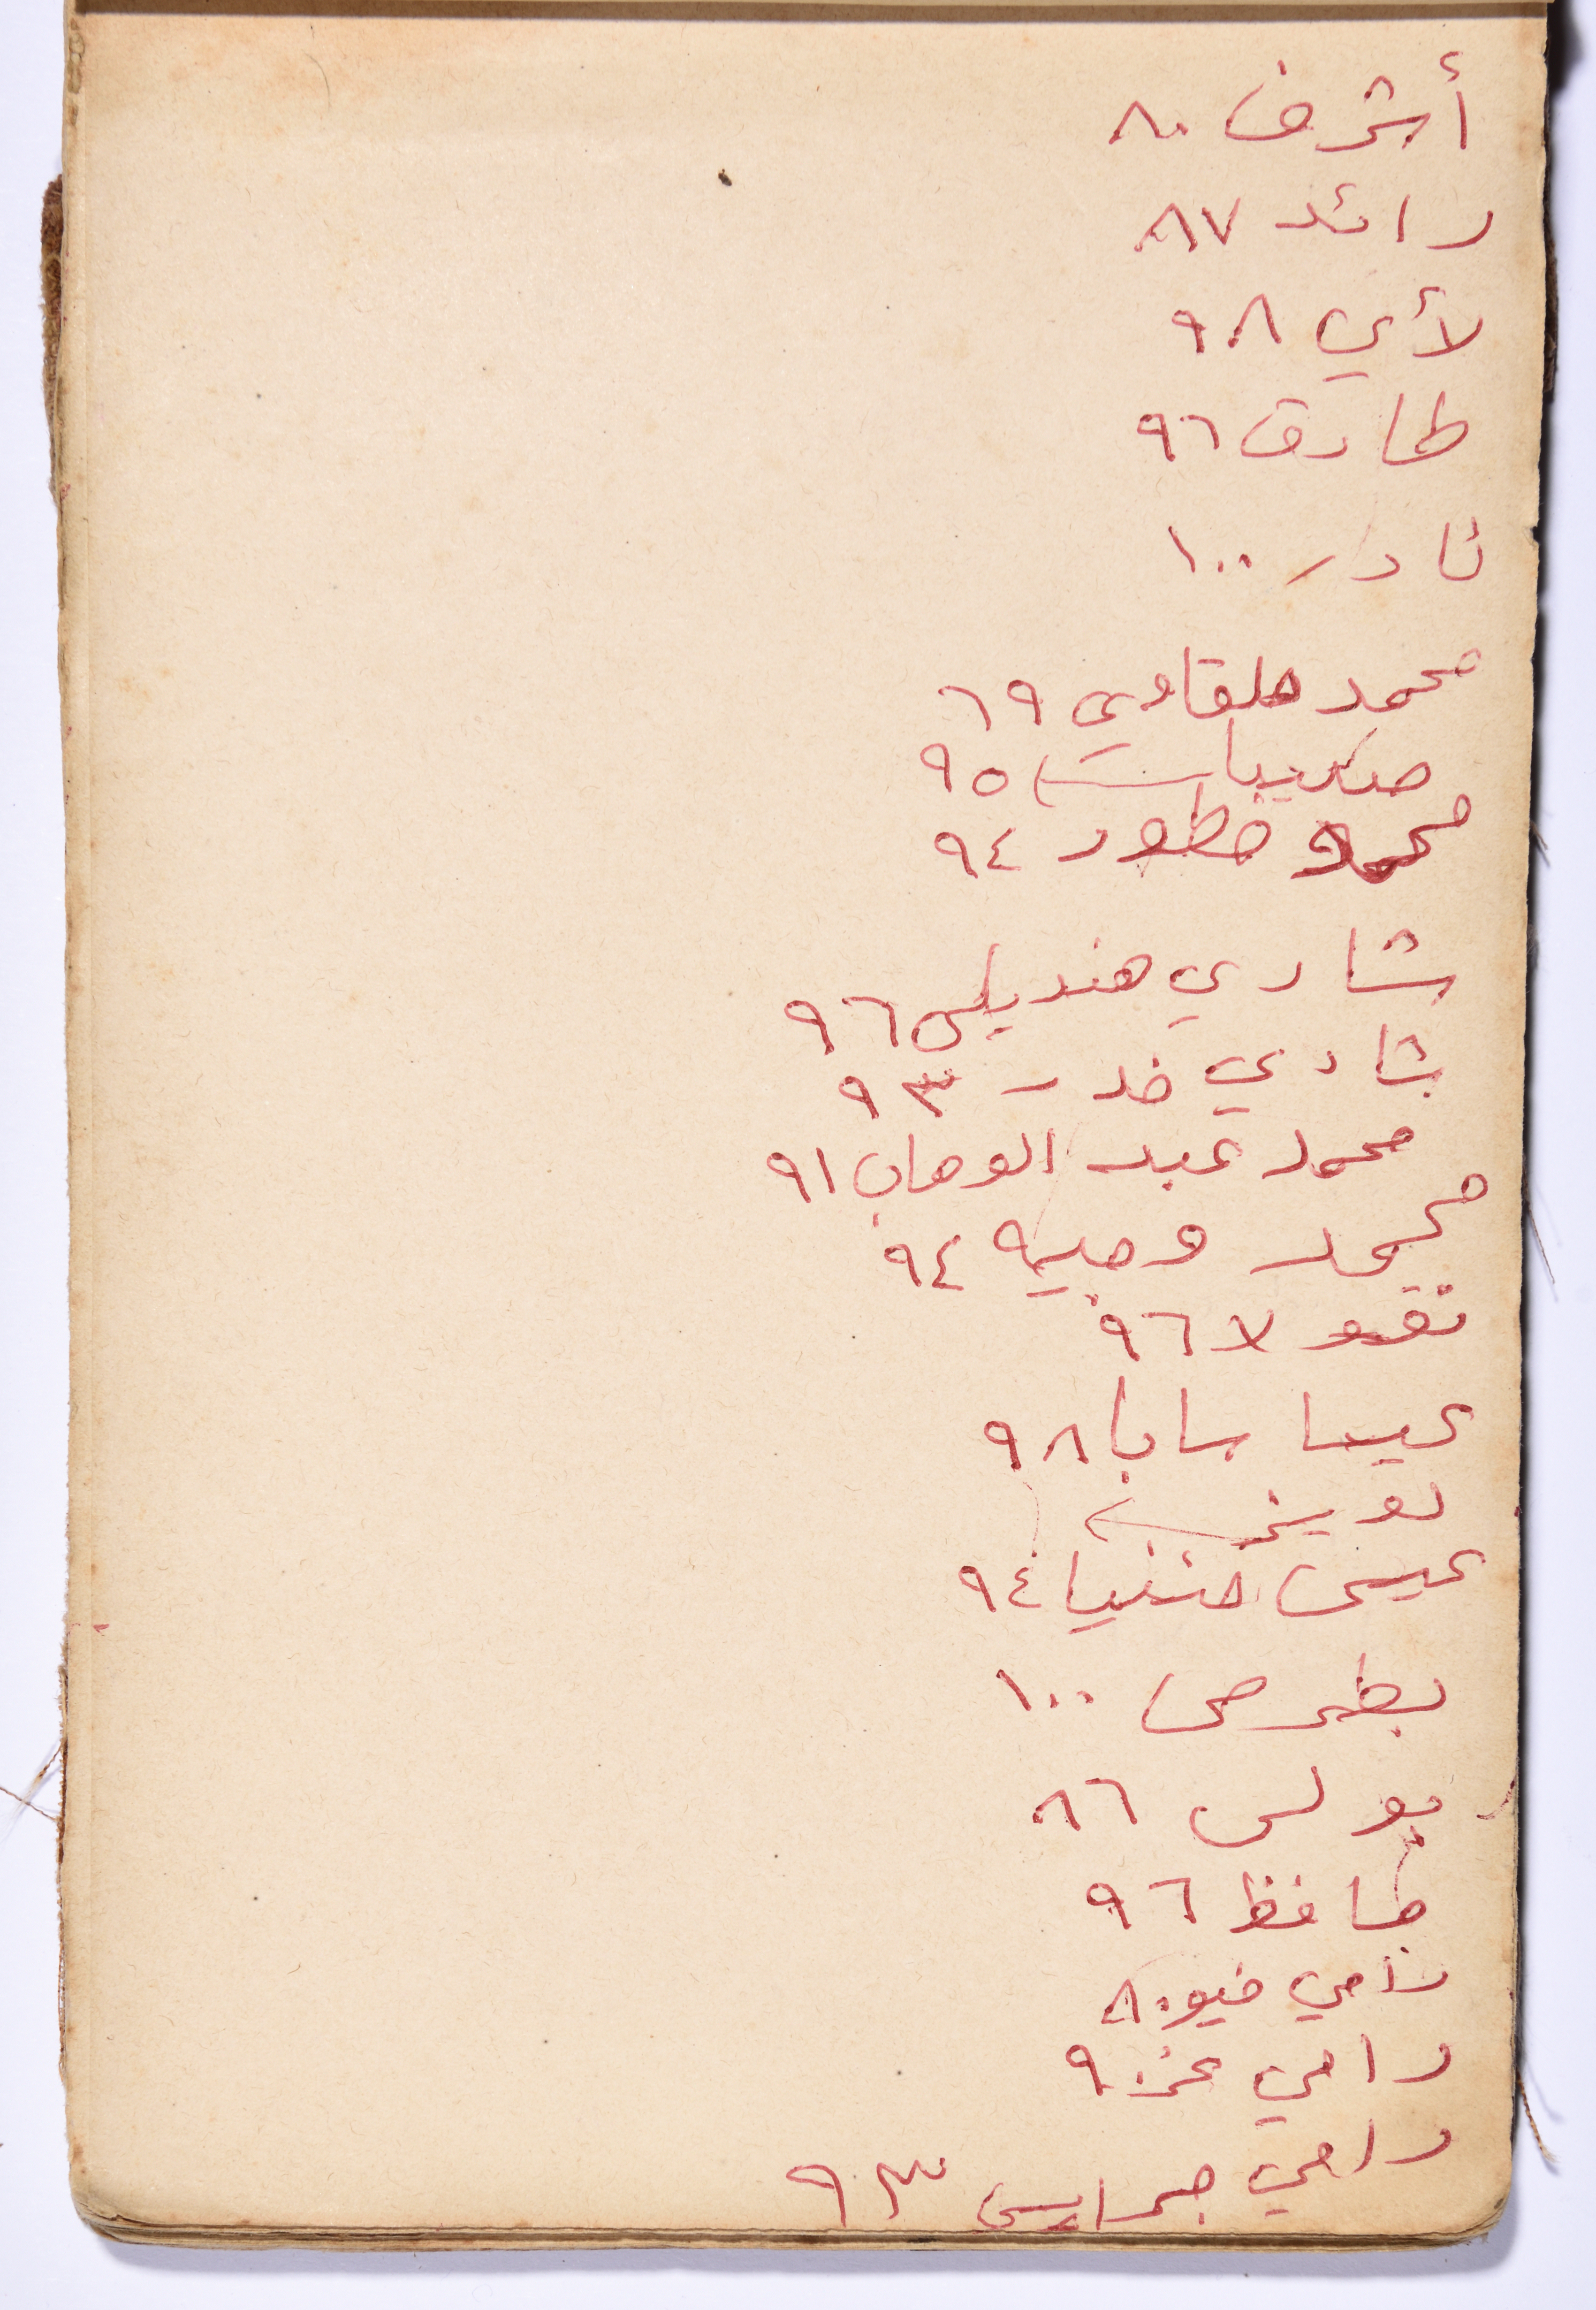 أشرف ٨٠
رائد ٨٧
لأي ٩٨
طارق ٩٦
نادر ١٠٠
محمد ملقاوي ٦٩
٩٥
محمد خطور ٩٤
شادي هنديلي ٩٦
شادي خدر ٩٣
محمد عبد الوهاب ٩١
محمد وجيه ٩٤
نقولا ٩٦
عيسا سابا ٩٨
عيسى حننيا ٩٤
بطرس ١٠٠
بولس ٨٦
حافظ ٩٦
رامي خيو ٨٠
رامي عز ٩٠
رامي جرايسي ٩٣